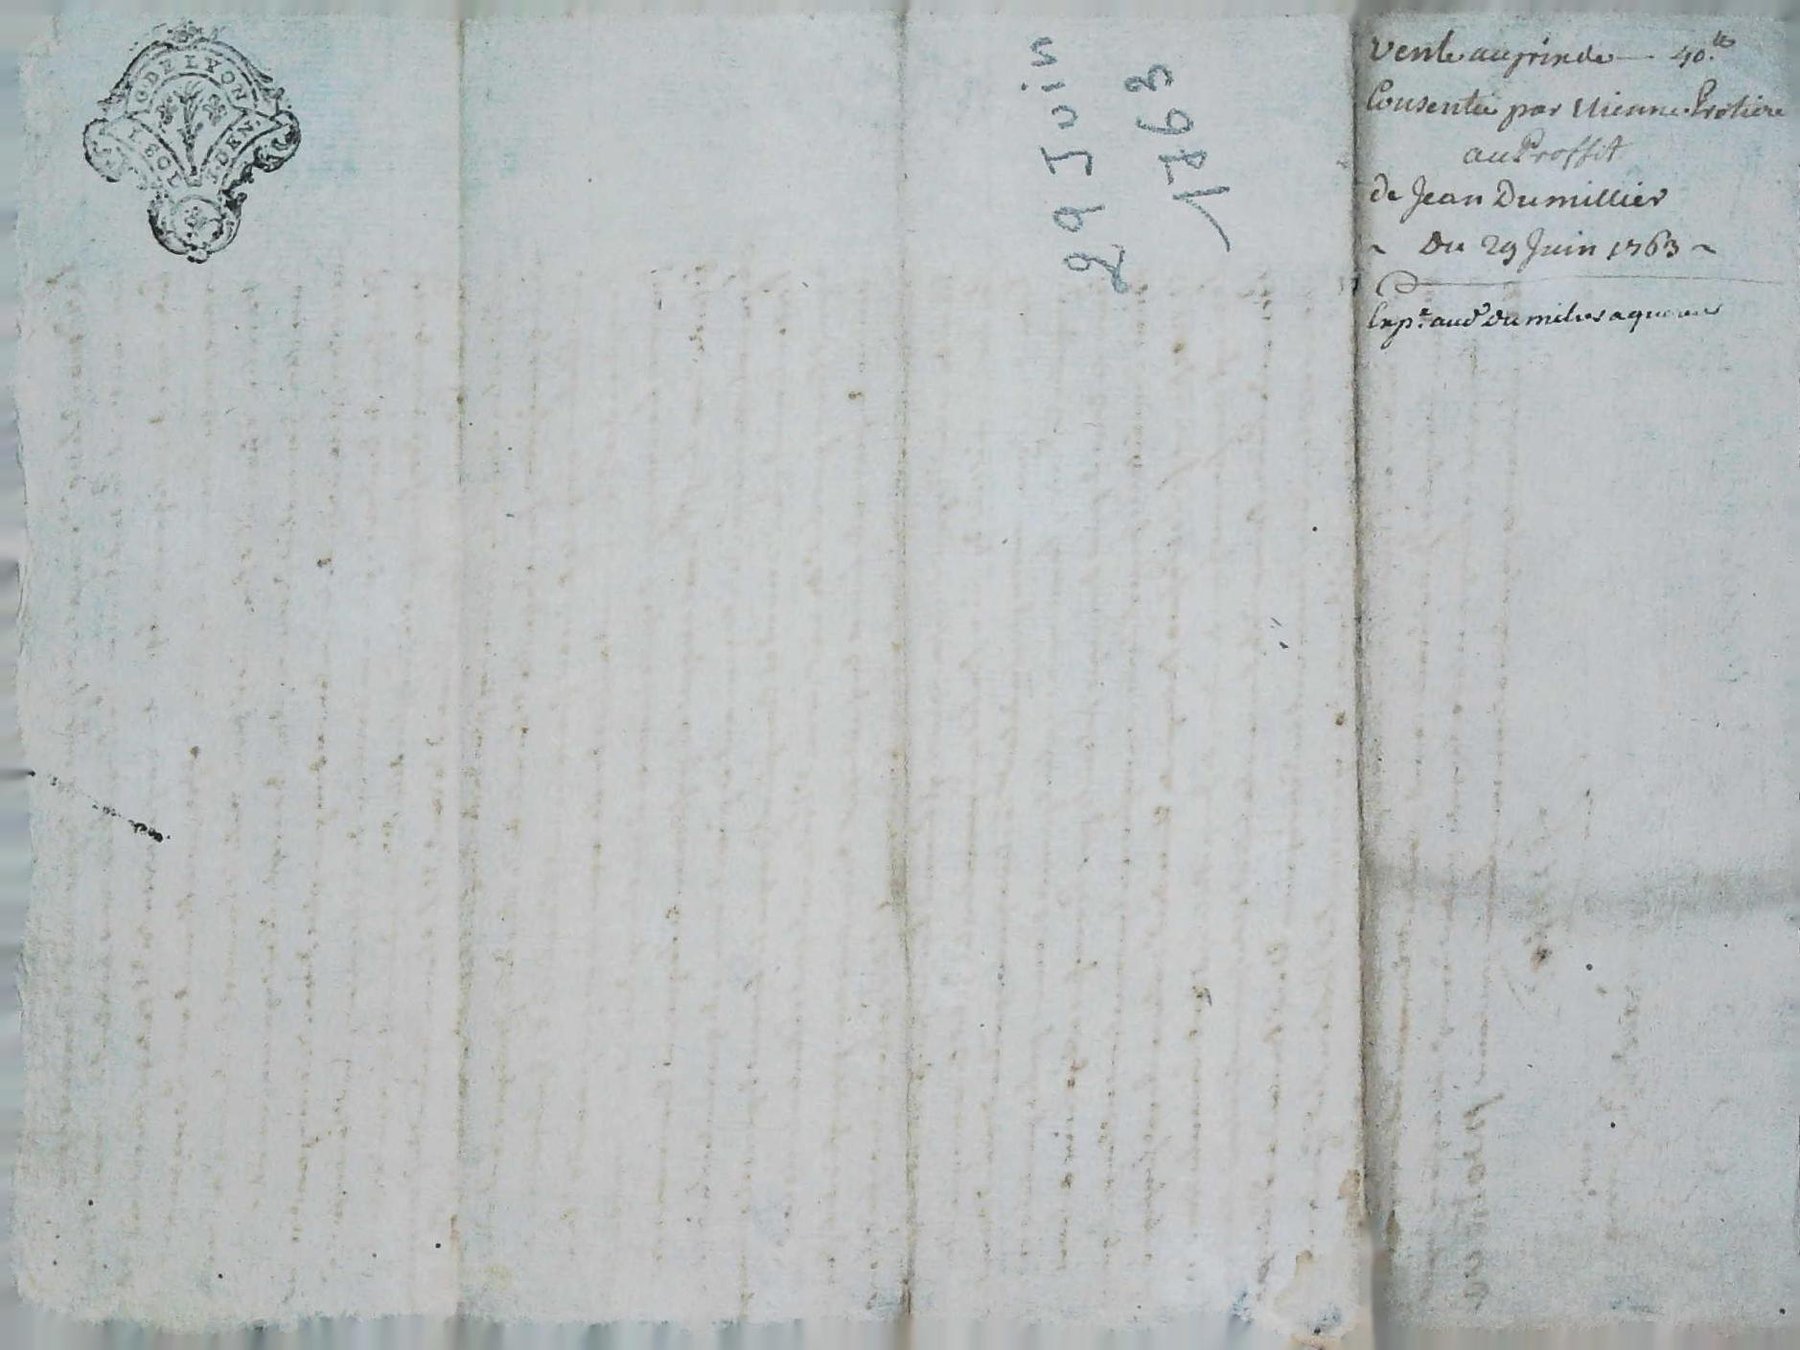 G. DE LYON
29 Juin
1763
Vente au prix de — 40.tt
Consentie par Etienne Protiere
au Proffit
de Jean Dumillier
~ Du 29 Juin 1763 ~
Exp.e aud.